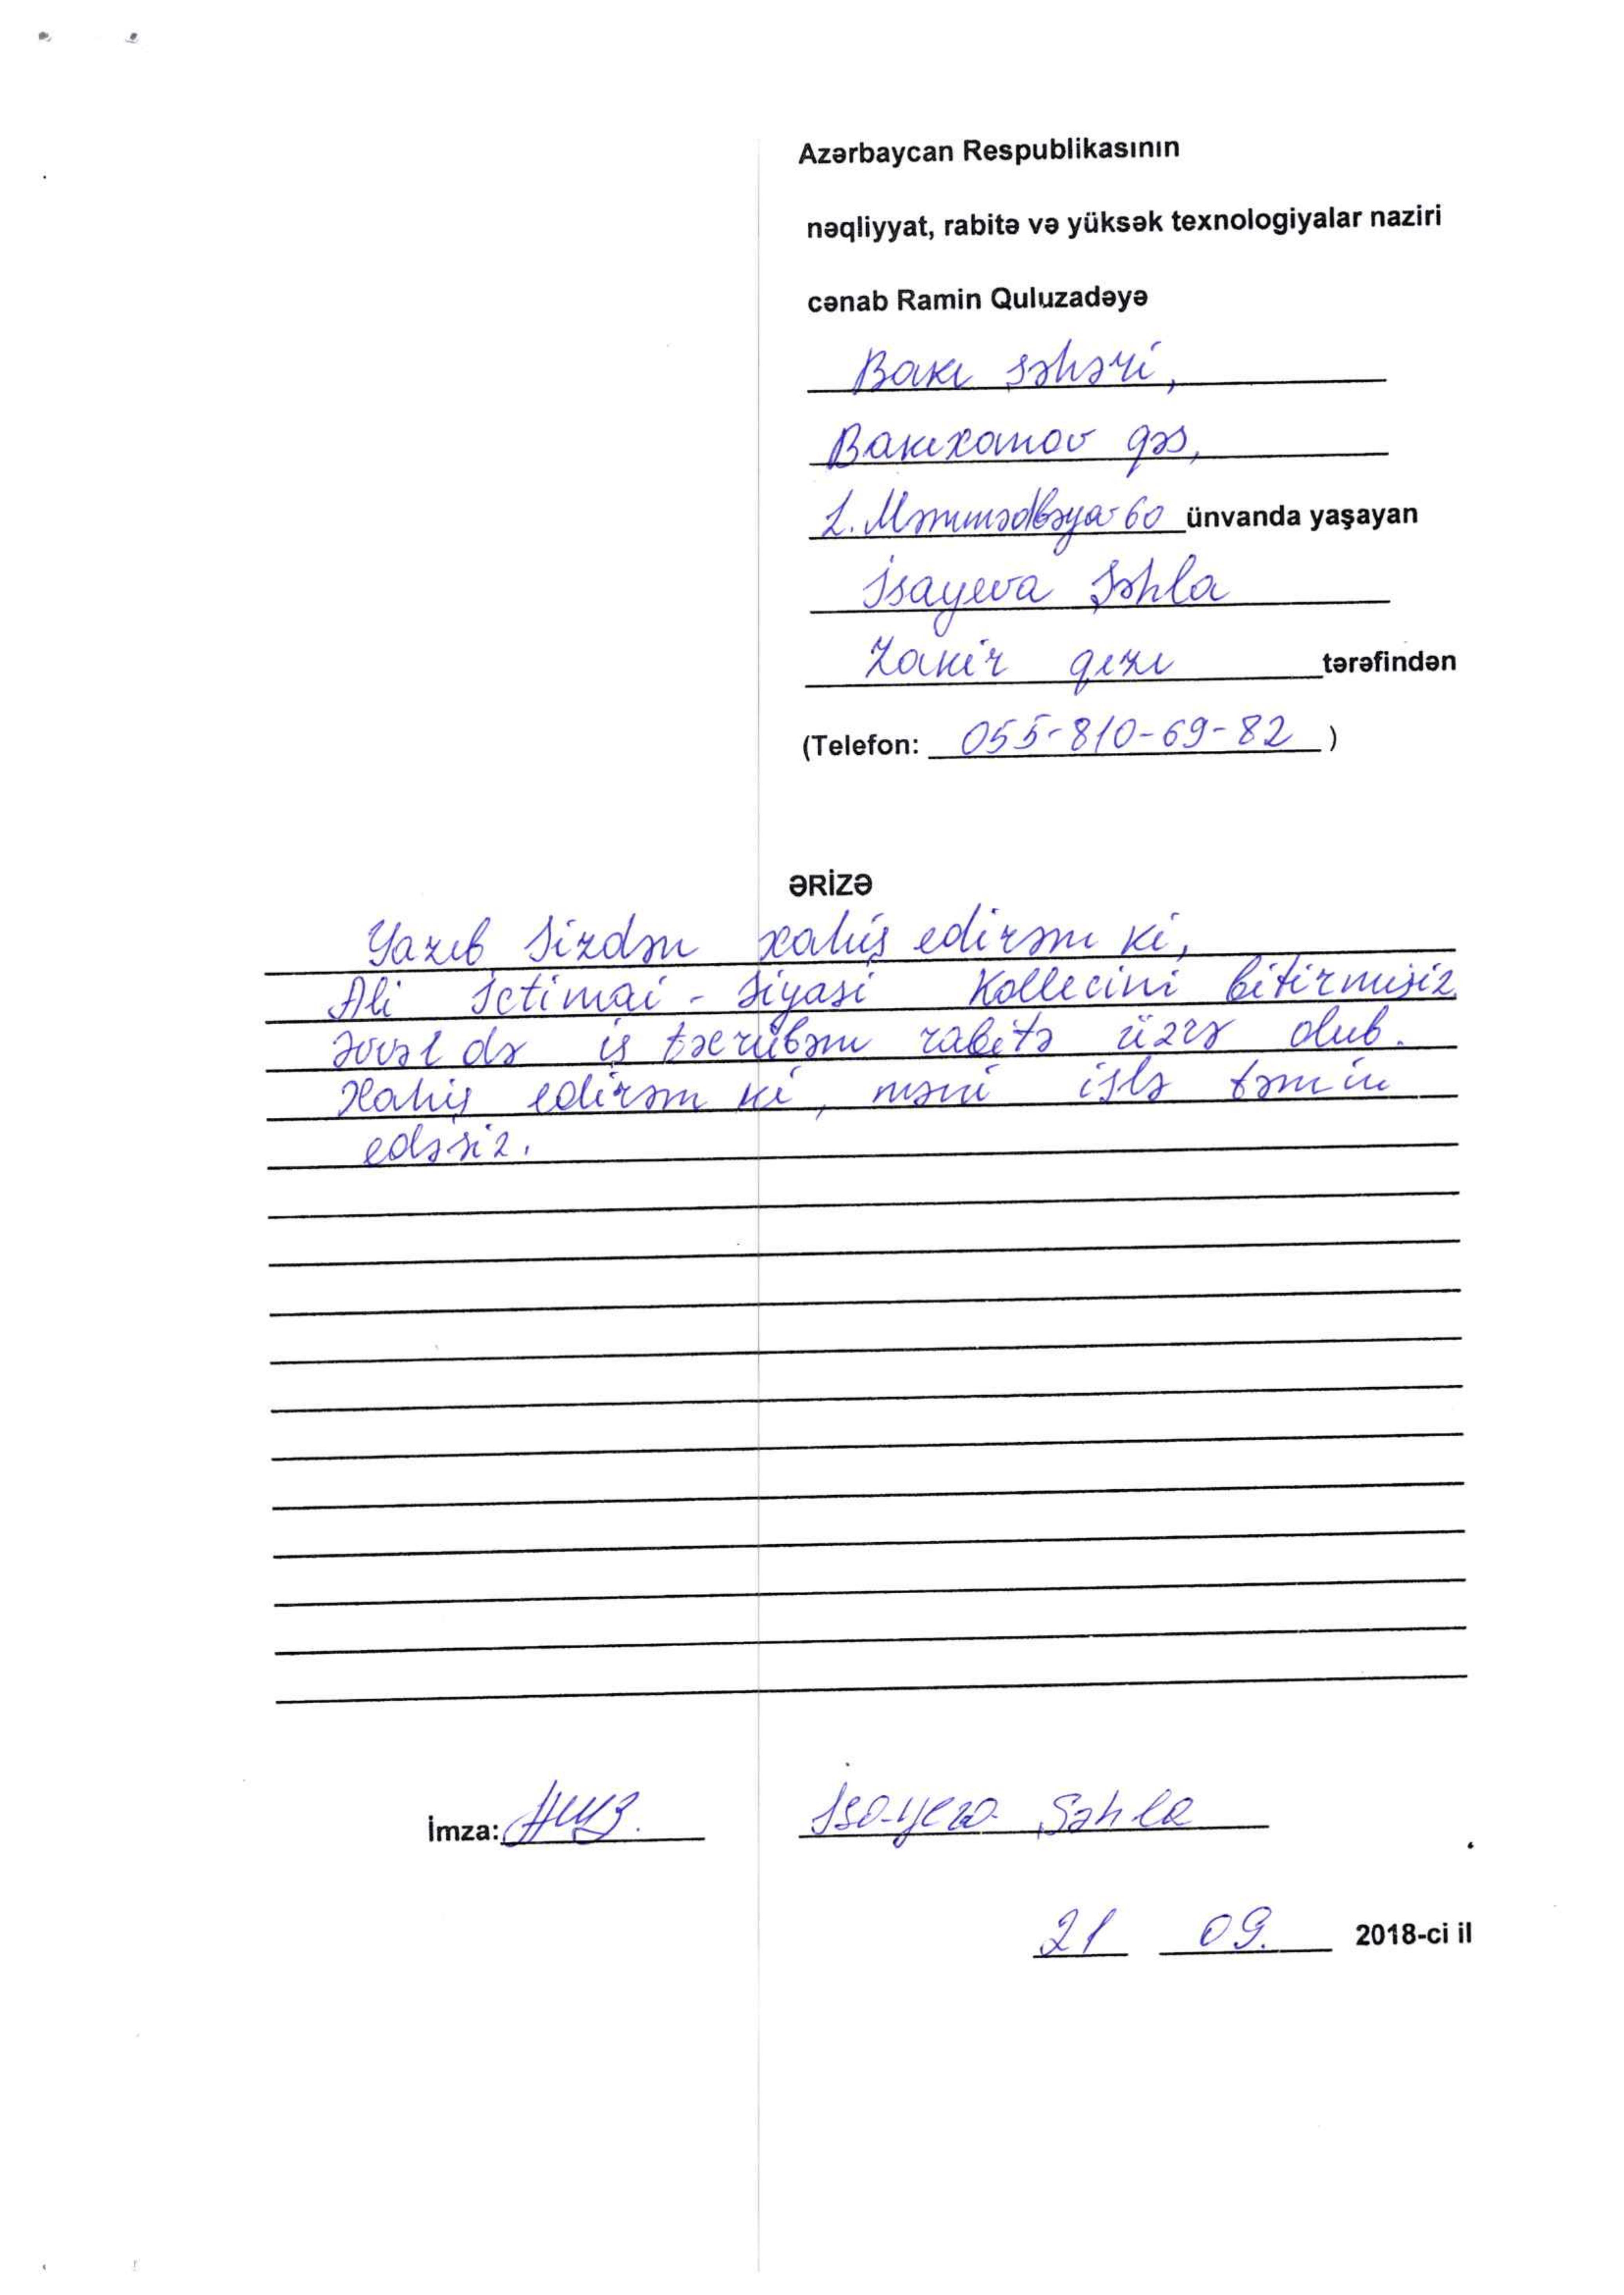 Azərbaycan Respublikasının
nəqliyyat, rabitə və yüksək texnologiyalar naziri
cənab Ramin Quluzadəyə
Bakı şəhəri,
Bakıxanov qəs,
Z. Məmmədbəyov 60 ünvanda yaşayan
İsayeva Şəhla
Zakir qızı tərəfindən
(Telefon: 055-810-69-82 )
ƏRİZƏ
Yazıb Sizdən xahiş edirəm ki,
Ali İctimai - Siyasi Kollecini bitirmişiz
əvvəl də iş təcrübəm rabitə üzrə olub.
Xahiş edirəm ki, məni işlə təmin
edəsiz.
İmza: İsayeva Şəhla
21 09. 2018-ci il